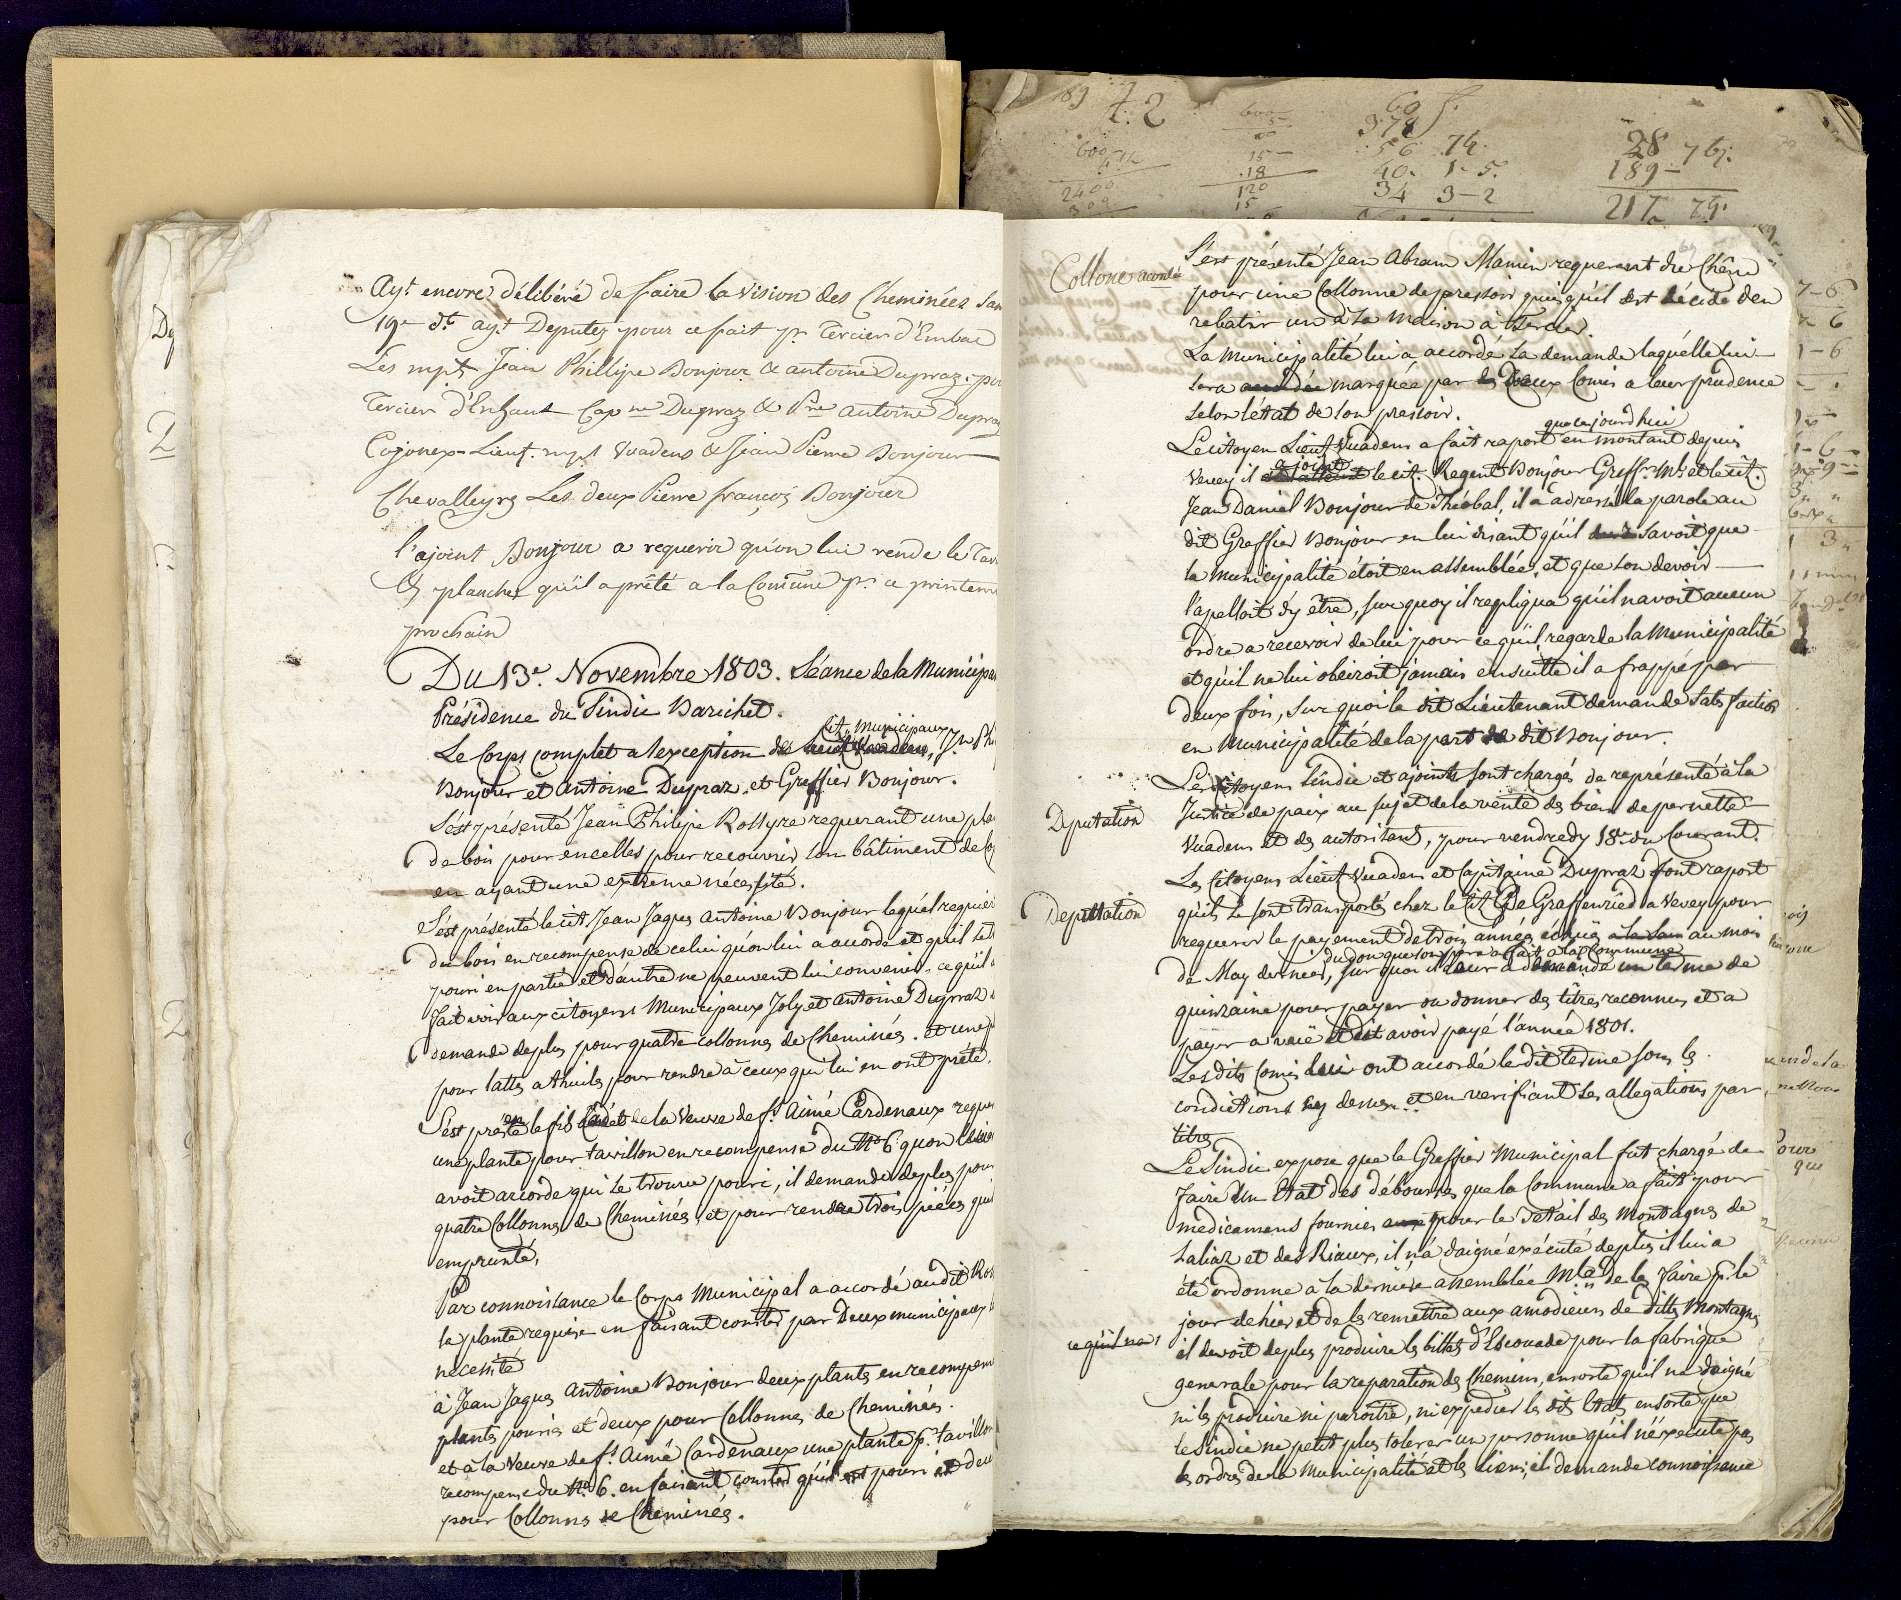 Ayt. encore délibéré de faire la vision des Cheminées
19e dt. ayt Deputez pour ce fait pr Tercier d'Embas
Les mpx Jean Phillipe Bonjour & antoine Dupraz. pour
Tercier d'Enhaut Cap ne Dupraz & Pre antoine Dupraz
Cojonex Lieut. mpl Vuadens & Jean Pierre Bonjour
Chevalleyre Les deux Pierre françois Bonjour
l'ajoint Bonjour a requerir qu'on lui rende le
planches qu'il a prêté a la Comune pr. ce printems
prochain
Du 13e. Novembre 1803. Séance de la Municipa
Présidence du Sindic Barichet.
cit. Municipaux
Le Corps complet a l'exception des Jn Phi
Bonjour et Antoine Dupraz, et Greffier Bonjour.
S'est présenté Jean Philipe Rossyre requerant une pla
de bois pour encelles pour recouvrir son bâtiment de
en ayant une extreme nécessité.
S'est présenté le cit Jean Jaques Antoine Bonjour lequel requier
du bois en recompense de celui qu'on lui a accordé et qu'il
pouri en partie et d'autre ne peuvent lui convenir, ce qu'il a
fait voir aux citoyens Municipaux Joly et Antoine Dupraz
demande de plus pour quatre collonnes de Cheminés. et une
pour lattes a thuiles pour rendre à ceux qui lui en ont prété.
S'est présenté le fils Cadet de la Veuve de ft. Aimé Cardenaux reque
une plante pour tavillon en recompense du No 6 qu'on
avoit accordé qui se trouve pouri, il demande de plus pour
quatre Collonnes de Cheminés, et pour rendre trois pièces qu'il
emprunté,
Par connoissance le Corps Municipal a accordé au dit Ros
la plante requise en faisant conster par Deux municipaux
necessité
à Jean Jaques Antoine Bonjour deux plantes en recompense
plantes pouries et deux pour Collonnes de Cheminées.
et à la Veuve de ft. Aimé Cardenaux une plante pr. tavillon
recompense du No 6. en faisant conster qu'il est pouri et deux
pour Collonnes de Cheminés.
Collone acordée
S'est présenté Jean Abram Mamin requerent du Chêne
pour une Collonne de pressoir puisqu'il est décidé d'en
rebatir un à sa Maison à Tercier.
La Municipalité lui a accordé sa demande laquelle lui
sera marquée par deux Comis a leur prudence
selon l'état de son pressoir.
que ce jourd'hui
Le citoyen Lieut Vuadens a fait raport en montant depuis
a joint
Vevey il le cit. Regent Bonjour Greffr. Mpl et le cit.
Jean Daniel Bonjour de Théobal, il a adressé la parole au
dit Greffier Bonjour en lui disant qu'il savoit que
la Municipalité étoit en assemblée, et que son devoir
l'apelloit d'y être, sur quoy il repliqua qu'il n'avoit aucun
ordre a recevoir de lui pour ce qu'il regarde la Municipalité
et qu'il ne lui obeiroit jamais ensuitte il a frappé par
deux fois, sur quoi le dit Lieutenant demande satisfaction
en Municipalité de la part du dit Bonjour.
Deputation
Les Citoyens Sindic et ajoint sont chargés de représenté à la
Justice de paix au sujet de la vente des biens de pernette
Vuadens et des autorisand, pour vendredy 18e du Courant.
Deputtation
Les Citoyens Lieut Vuadens et Capitaine Dupraz font raport
qu'ils se sont transportés chez le Cit De Graffenried a Vevey pour
requerir le payement de trois années échues au mois
du don que son pere a fait a la Commune
de May dernier, sur quoi il leur a demandé un terme de
quinzaine pour payer ou donner des titres reconnus et a
payer a vüe et dit avoir payé l'année 1801.
Les dits Comis lui ont accordé le dit terme sous les
condictions cy dessus et en verifiant ses allegations par
titres
Le Sindic expose que le Greffier Municipal fut chargé de
faire un Etat des débourses que la Commune a fait pour
medicamens fournies pour le Betail des Montagnes de
Saliaz et des Riaux, il n'a daigné exécuté de plus il lui a
été ordonné a la dernière assemblée Mle de les faire pr. le
jour de hier et de les remettre aux amodieurs de dittes Montagnes
ce qu'il na
il devoit de plus produire les billets d'Escouade pour la fabrique
generale pour la reparation des Chemins, ensorte qu'il na daigné
ni les produire ni paroitre, ni expedier les dits Etats ensorte que
le Sindic ne peut plus tolerer un personne qu'il n'éxecute pas
les ordres de la Municipalité et les siens, il demande connoissance